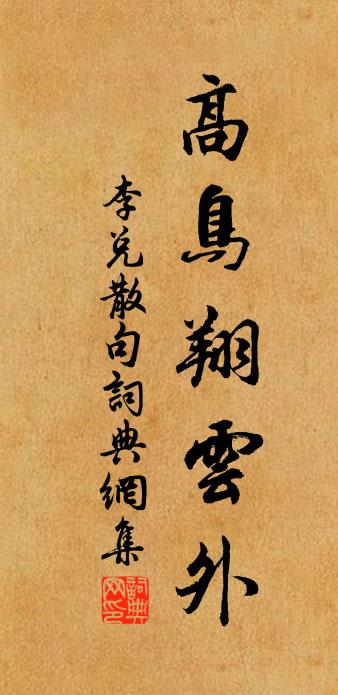 高鳥翔雲外
李兑散句詞典網集
詞典网印